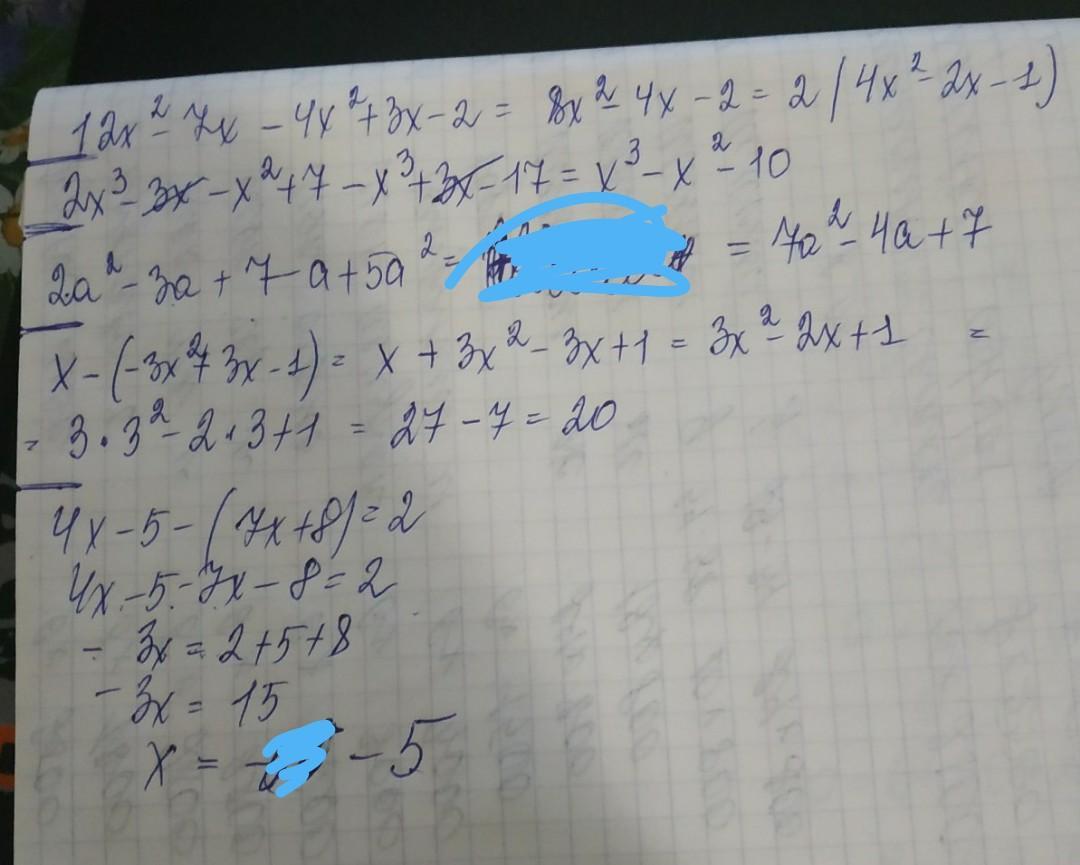 12x² - 7x - 4x² + 3x - 2 = 8x² - 4x - 2 = 2(4x² - 2x - 1)
2x³ - 3x - x² + 7 - x³ + 3x - 17 = x³ - x² - 10
2a² - 3a + 7 - a + 5a² = = 7a² - 4a + 7
x - (-3x² + 3x - 1) = x + 3x² - 3x + 1 = 3x² - 2x + 1 =
= 3 · 3² - 2 · 3 + 1 = 27 - 7 = 20
4x - 5 - (7x + 8) = 2
4x - 5 - 7x - 8 = 2
- 3x = 2 + 5 + 8
- 3x = 15
x = - 5